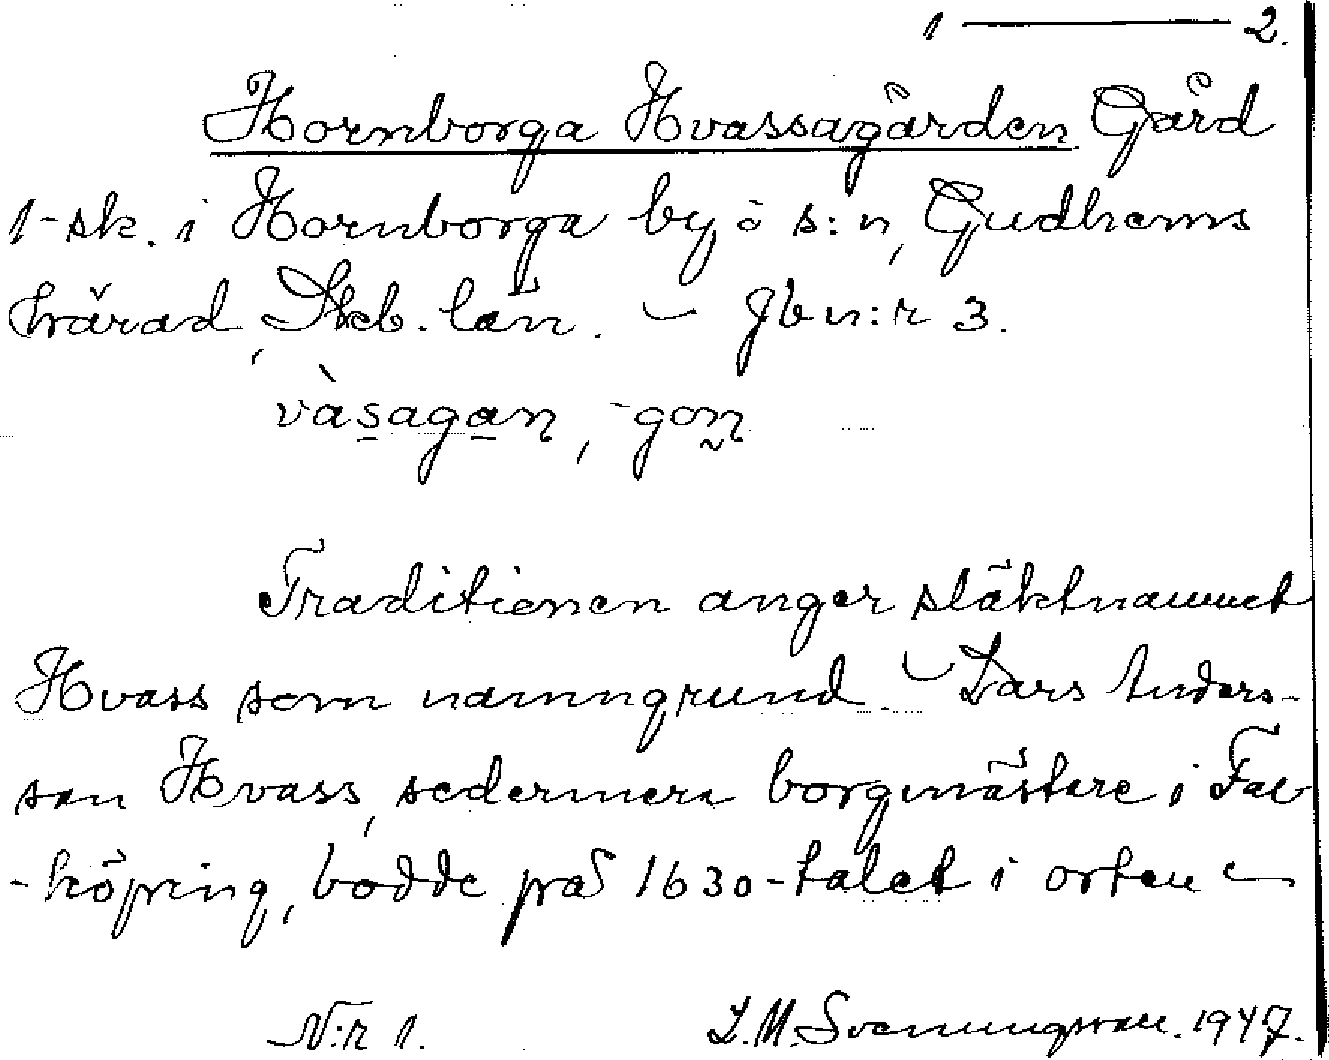 1 — 2.
Hornborga Hvassagården Gård
1-sk. i Hornborga by o s:n, Gudhems
härad, Skb. län. – Jb n:r 3.
vàsagan, -gon
Traditionen anger släktnamnet
Hvass som namngrund – Lars Anders-
son Hvass, sedermera borgmästare i Fal
-köping, bodde på 1630-talet i orten –
N:r 1. L.M. Svenungsson. 1947.